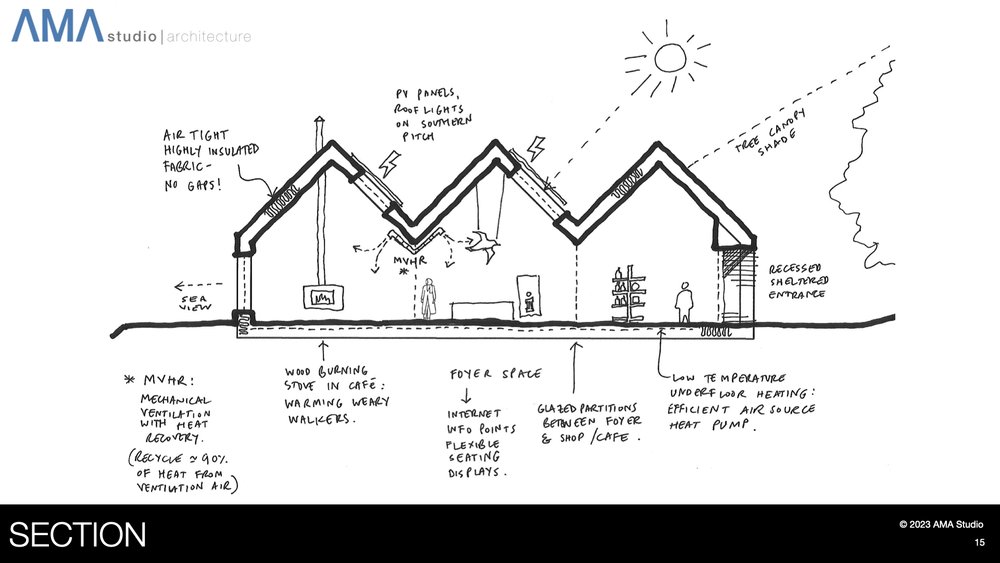 AMA studio|architecture
PV PANELS,
ROOFLIGHTS
ON SOUTHERN
PITCH
AIR TIGHT
HIGHLY INSULATED
FABRIC -
NO GAPS!
TREE CANOPY
SHADE
MVHR
*
SEA
VIEW
RECESSED
SHELTERED
ENTRANCE
* MVHR:
MECHANICAL
VENTILATION
WITH HEAT
RECOVERY.
(RECYCLE ≃ 90%
OF HEAT FROM
VENTILATION AIR)
WOOD BURNING
STOVE IN CAFÉ:
WARMING WEARY
WALKERS.
FOYER SPACE
INTERNET
INFO POINTS
FLEXIBLE
SEATING
DISPLAYS.
GLAZED PARTITIONS
BETWEEN FOYER
& SHOP / CAFE.
LOW TEMPERATURE
UNDERFLOOR HEATING:
EFFICIENT AIR SOURCE
HEAT PUMP.
SECTION
© 2023 AMA Studio
15